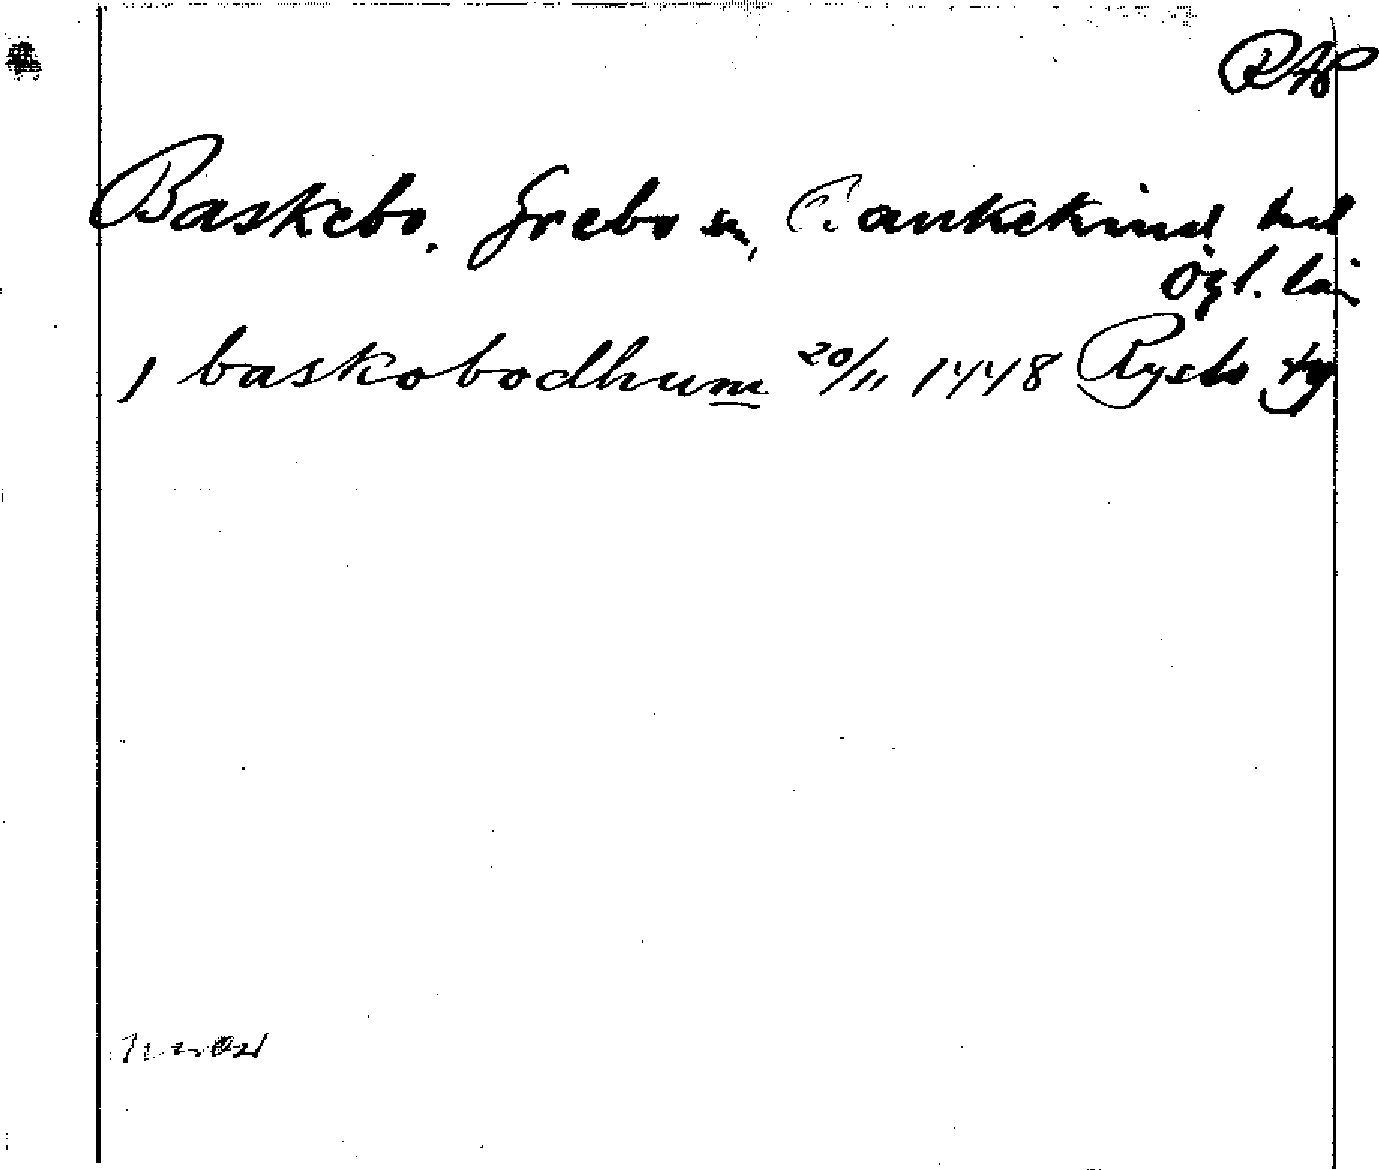 RAP
Baskebo. Grebo sn, Bankekind hd
Ögl. län
j baskobodhum 20/11 1448 Rysbo